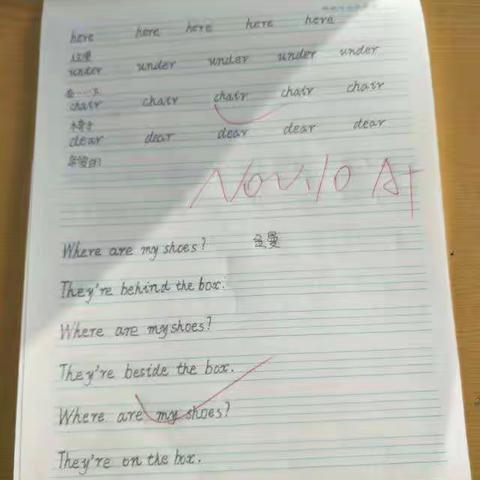 here here here here here
这里
under under under under under
在……下
chair chair chair chair chair
椅子
dear dear dear dear dear
亲爱的
Nov.10 A+
Where are my shoes?
They're behind the box.
Where are my shoes?
They're beside the box.
Where are my shoes?
They're on the box.